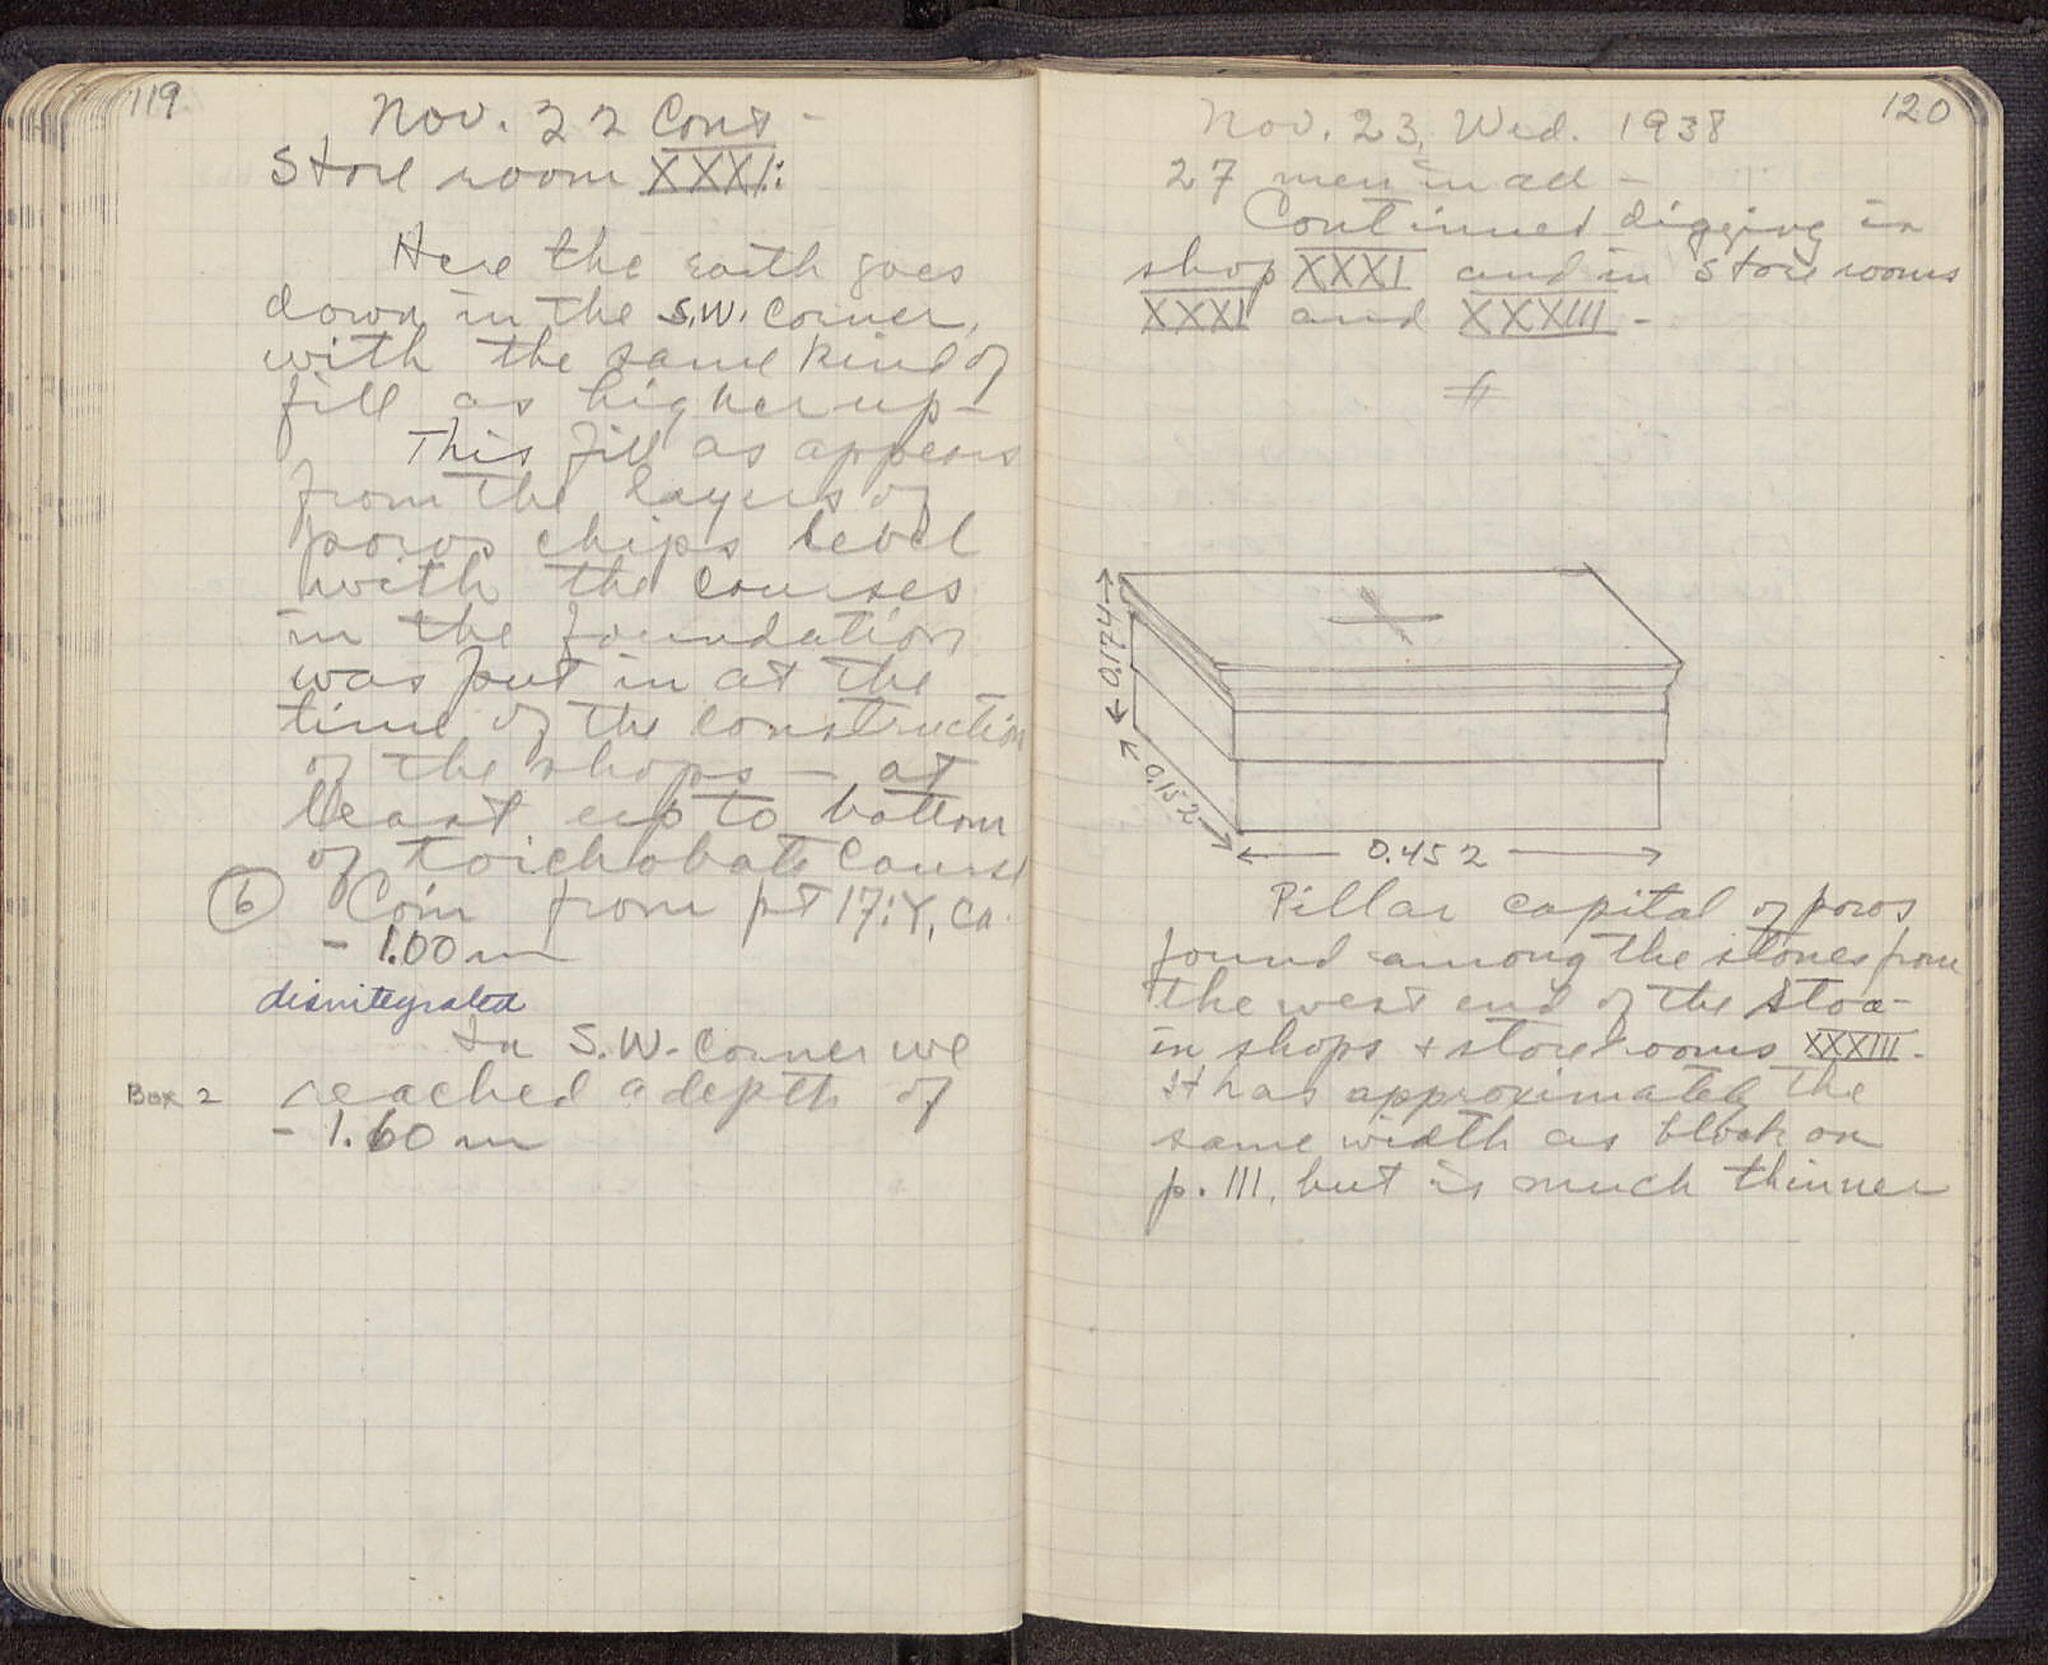 119
Nov. 22 Cont-
Store room XXXI:
Here the earth goes
down in the S.W. Corner,
with the same kind of
fill as higher up-
This fill as appears
from the layers of
poros chips level
with the courses
in the foundation
was put in at the
time of the construction
of the shops - at
least up to bottom
of toichobate course
6 Coin from pt 17:Y, ca.
- 1.00 m
disintegrated
In S.W. Corner we
Box 2 reached a depth of
- 1.60 m
120
Nov. 23, Wed. 1938
27 men in all -
Continued digging in
shop XXXI and in store rooms
XXXI and XXXIII -
0.174
0.152
0.452
Pillar capital of poros
found among the stones from
the west end of the stoa-
in shops + storerooms XXXIII.
It has approximately the
same width as block on
p. 111, but is much thinner